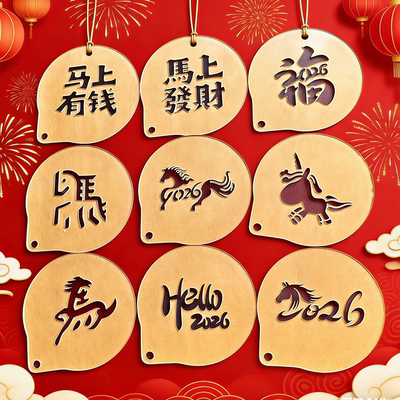 马上
有钱
馬上
發財
2026
福
馬
2026
馬
Hello
2026
2026